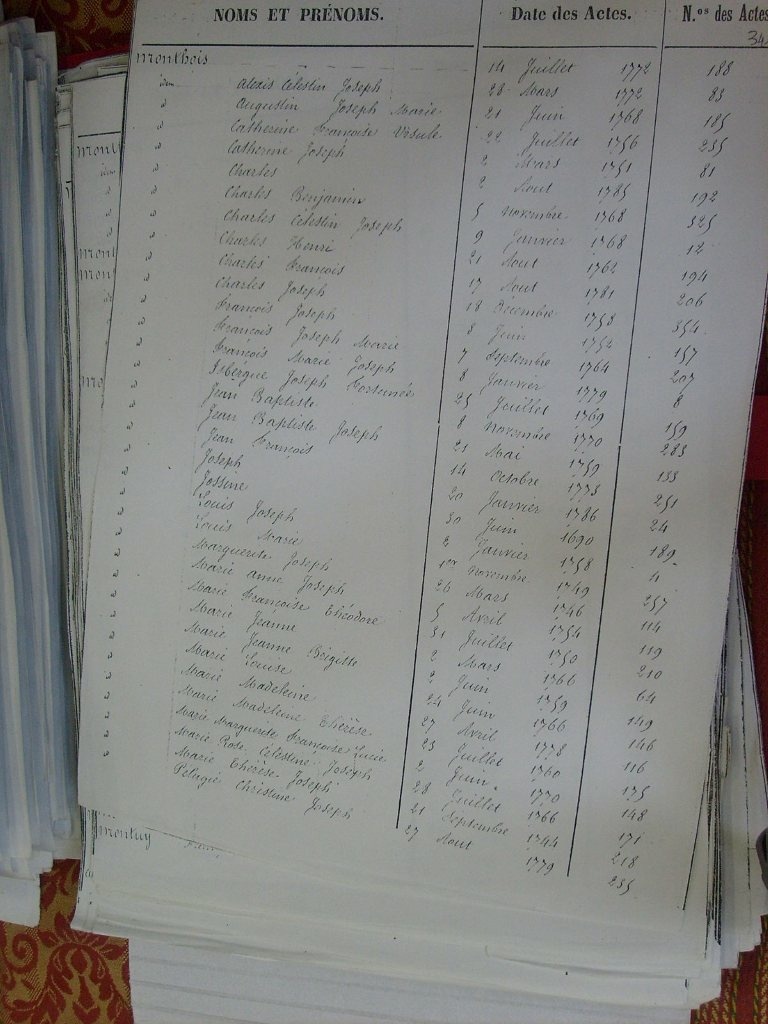 NOMS ET PRÉNOMS.
Date des Actes.
N.os des Actes
34
monthois
Alexis Célestin Joseph
Augustin Joseph Marie
Catherine Françoise Ursule
Catherine Joseph
Charles
Charles Benjamin
Charles Célestin Joseph
Charles Henri
Charles François
Charles Joseph
François Joseph
François Joseph Marie
François Marie Joseph
Isbergue Joseph Fortunée
Jean Baptiste
Jean Baptiste Joseph
Jean François
Joseph
Jossine
Louis Joseph
Louis Marie
Marguerite Joseph
Marie Anne Joseph
Marie Françoise Théodore
Marie Jeanne
Marie Jeanne Brigitte
Marie Louise
Marie Madeleine
Marie Madeleine Thérèse
Marie Marguerite Françoise Lucie
Marie Rose Célestine Joseph
Marie Thérèse Joseph
Pélagie Christine Joseph
14 Juillet 1772 188
28 Mars 1772 83
21 Juin 1768 185
22 Juillet 1756 235
2 Mars 1751 81
2 Aout 1785 192
5 Novembre 1768 325
9 Janvier 1768 12
21 Aout 1762 194
17 Aout 1781 206
18 Décembre 1758 354
8 Juin 1752 157
7 Septembre 1764 207
8 Janvier 1779 8
25 Juillet 1769 159
8 Novembre 1770 283
21 Mai 1759 133
14 Octobre 1773 251
20 Janvier 1786 24
30 Juin 1690 189
2 Janvier 1758 4
1er Novembre 1749 257
26 Mars 1746 114
5 Avril 1754 119
31 Juillet 1750 210
2 Mars 1766 64
2 Juin 1759 149
24 Juin 1766 146
27 Avril 1778 116
23 Juillet 1760 175
2 Juin 1770 148
28 Juillet 1766 171
21 Septembre 1744 218
27 Aout 1779 235
montuy